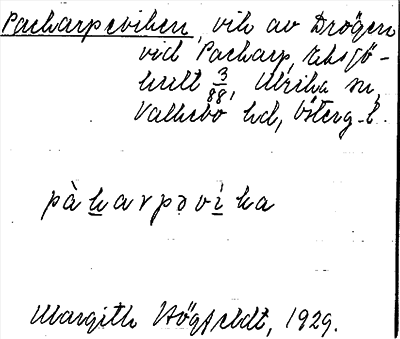 Packarpeviken, vik av Drögen
vid Packarp, Eksjö-
hult 3/88, Ulrika sn,
Valkebo hd, Österg. l.
pàkarpəvìka
Margith Högfeldt, 1929.